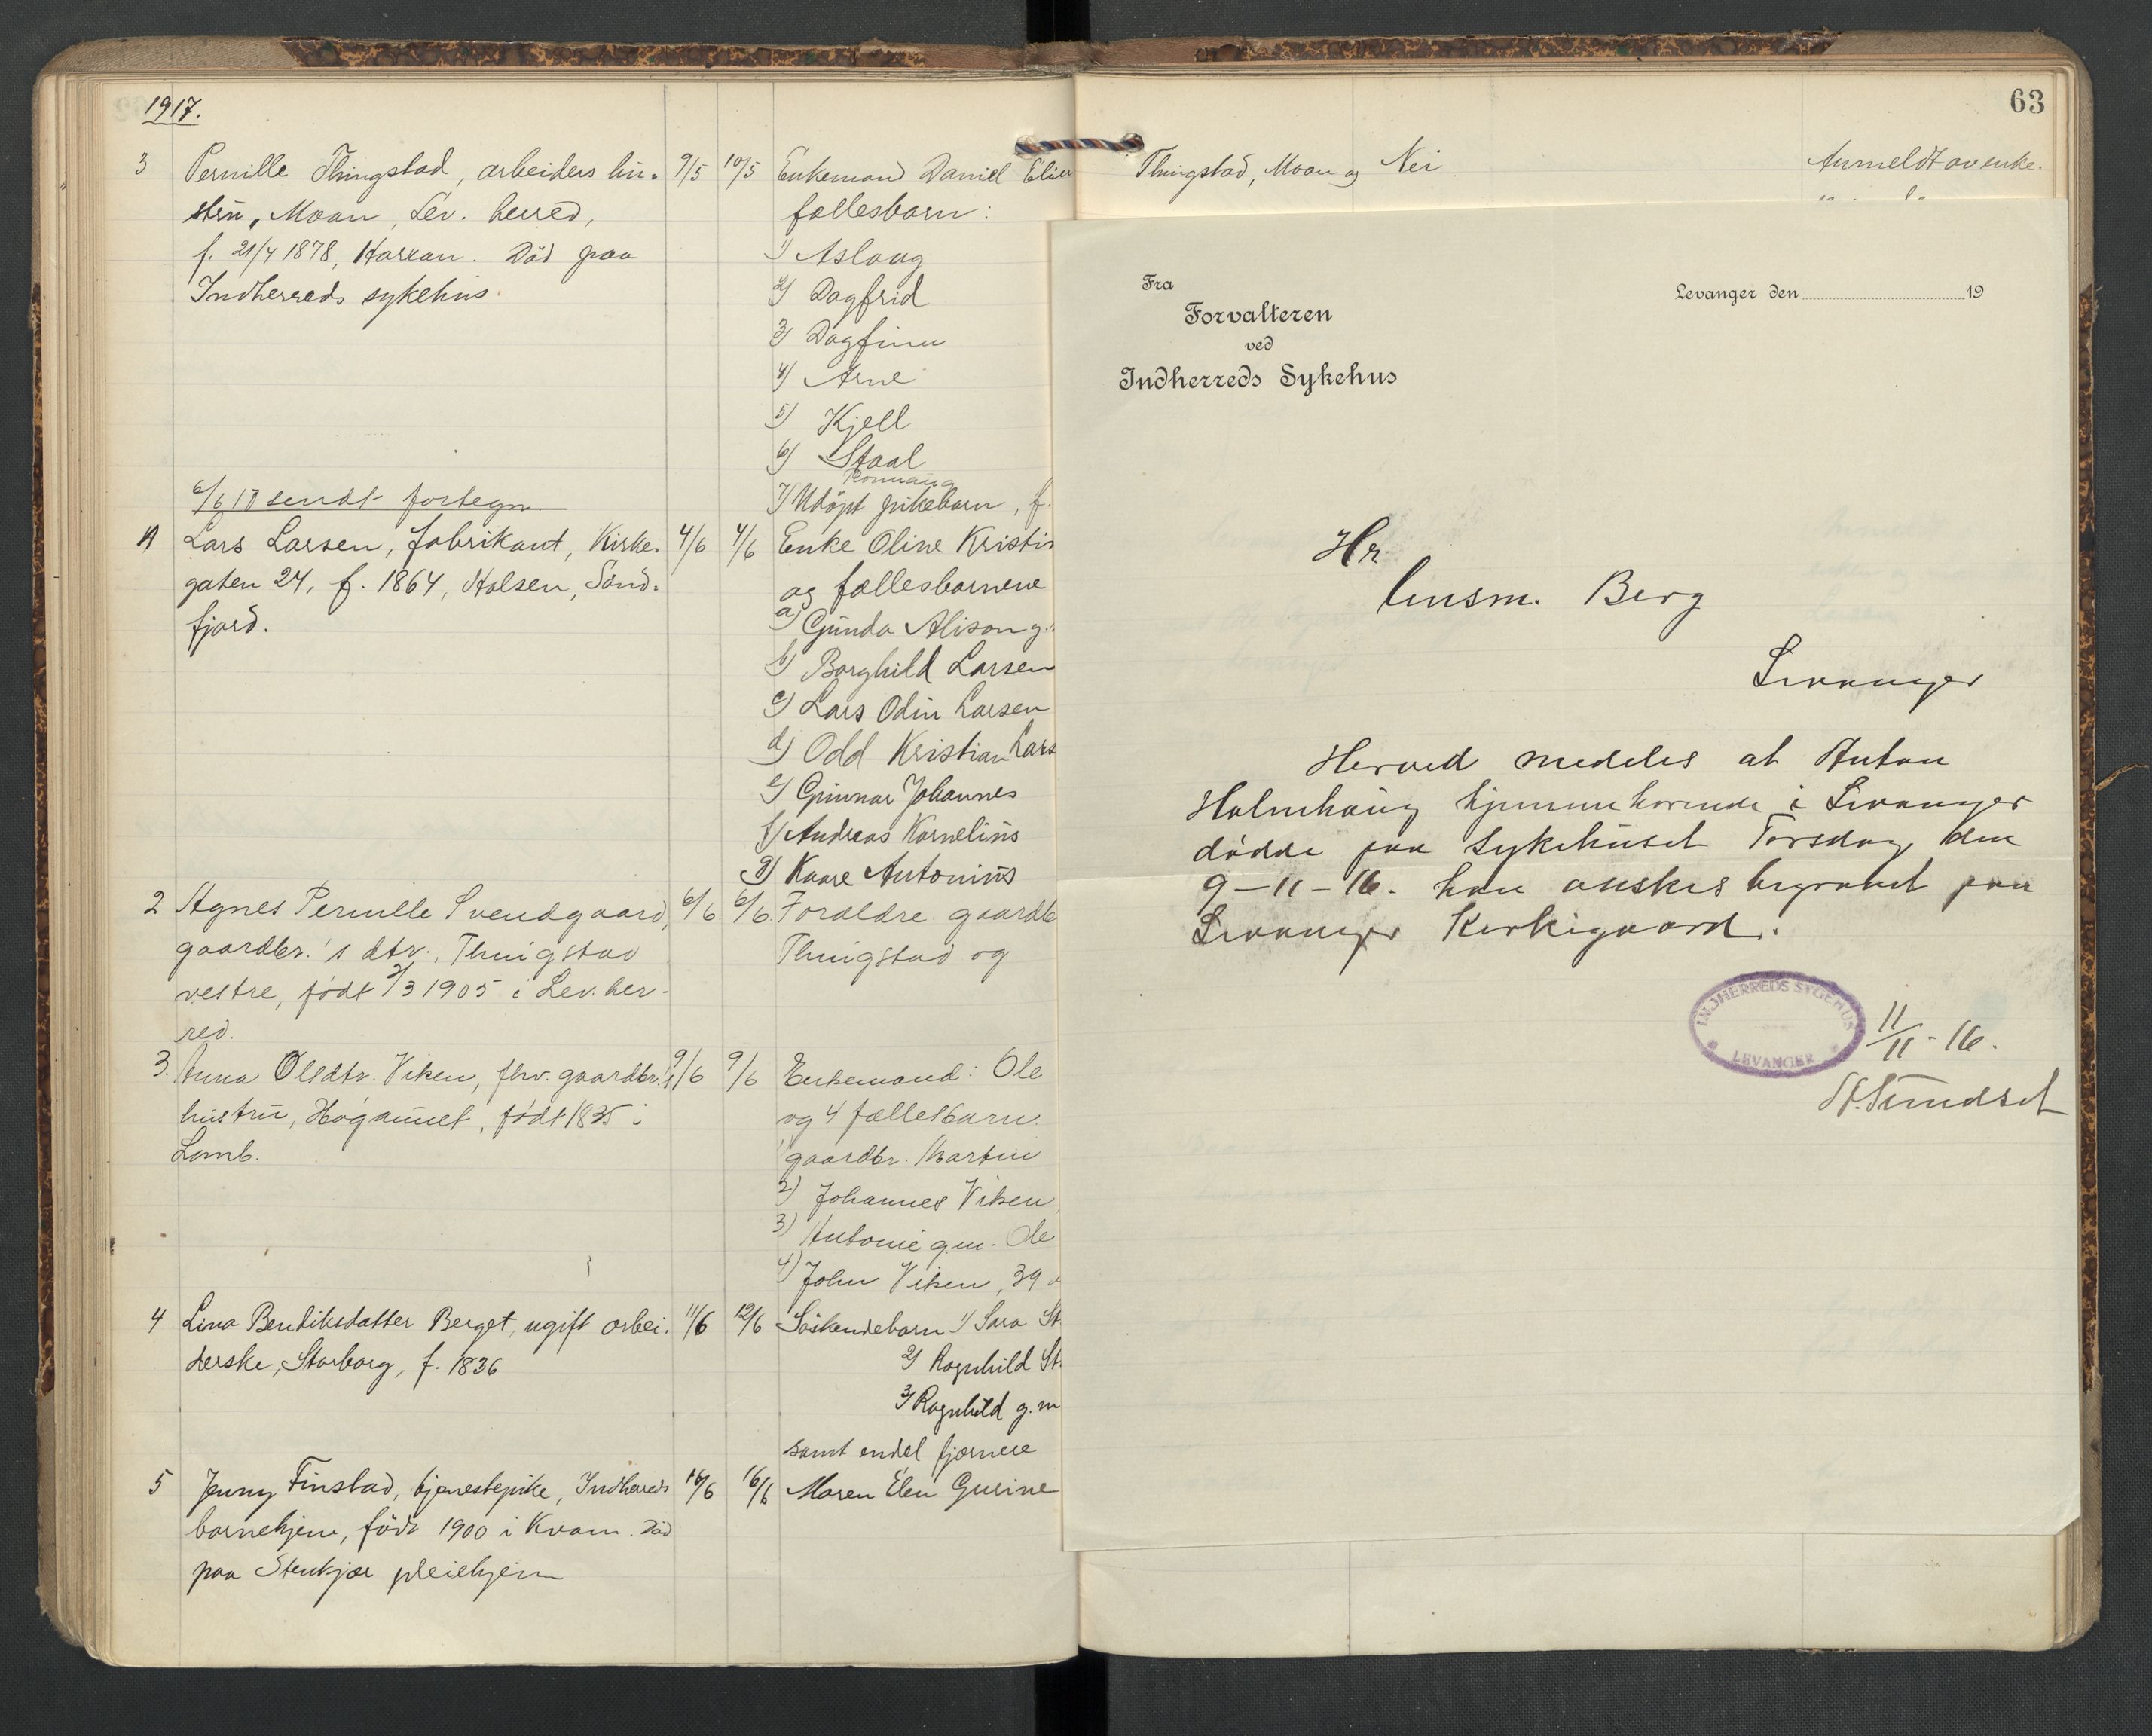 1917.
63
3 Pernille Thingstad, arbeiders hu-
stru, Moan, Lev. herred,
f. 21/4 1878, Karran. Död paa
Indherreds sykehus.
9/5 10/5
Enkemand Daniel
fællesbarn:
1) Aslaug
2) Dagfrid
3) Dagfinn
4) Arne
5) Kjell
6) Staal
7) Udöpt pikebarn, f.
Thingstad, Moan og Nei
Anmeldt av enke-
6/6 17 sendt fortegn
Lars Larsen, fabrikant, Kirke-
gaten 24, f. 1864, Holsen, Sönd-
fjord.
4/6 4/6
Enke Oline Kristi
og fællesbarnene
a) Gunda Alison g.
b) Borghild Larsen
c) Lars Odin Larsen
d) Odd Kristian Lars
e) Gunnar Johannes
f) Andreas Kornelius
g) Kaare Antonius
2 Agnes Pernille Svendgaard,
gaardbr.'s dtr., Thingstad
vestre, født 2/3 1905 i Lev. her-
red.
6/6 6/6
Forældre gaardb
Thingstad og
3. Anna Olsdtr. Viken, fhv. gaardbr.s
hustru, født 1835 i
Lomb.
9/6 9/6
Enkemand: Ole
og 4 fællesbarn.
gaardbr. Martin
2) Johannes Viken
3) Antonie g.m. Ole
4) John Viken, 39
4 Lina Bendiksdatter Berget, ugift arbei-
derske, Storborg, f. 1836
11/6 12/6
Söskendebarn 1) Sara St
2) Ragnhild St.
3) Ragnhild g. m
samt endel fjernere
5 Jenny Finstad, tjenestepike, Indherreds
barnehjem, född 1900 i Kvam. Död
paa Stenkjær pleiehjem
16/6 16/6
Maren Elen Gurine
Fra
Forvalteren
ved
Indherreds Sykehus
Levanger den 19
Hr
Lensm. Berg
Levanger
Herved medeles at Anton
Holmhaug hjemmehørende i Levanger
dødde paa Sykehuset Torsdag den
9-11-16. han ønskes begravet paa
Levanger Kirkegaard.
INDHERREDS SYGEHUS
LEVANGER
11/11-16.